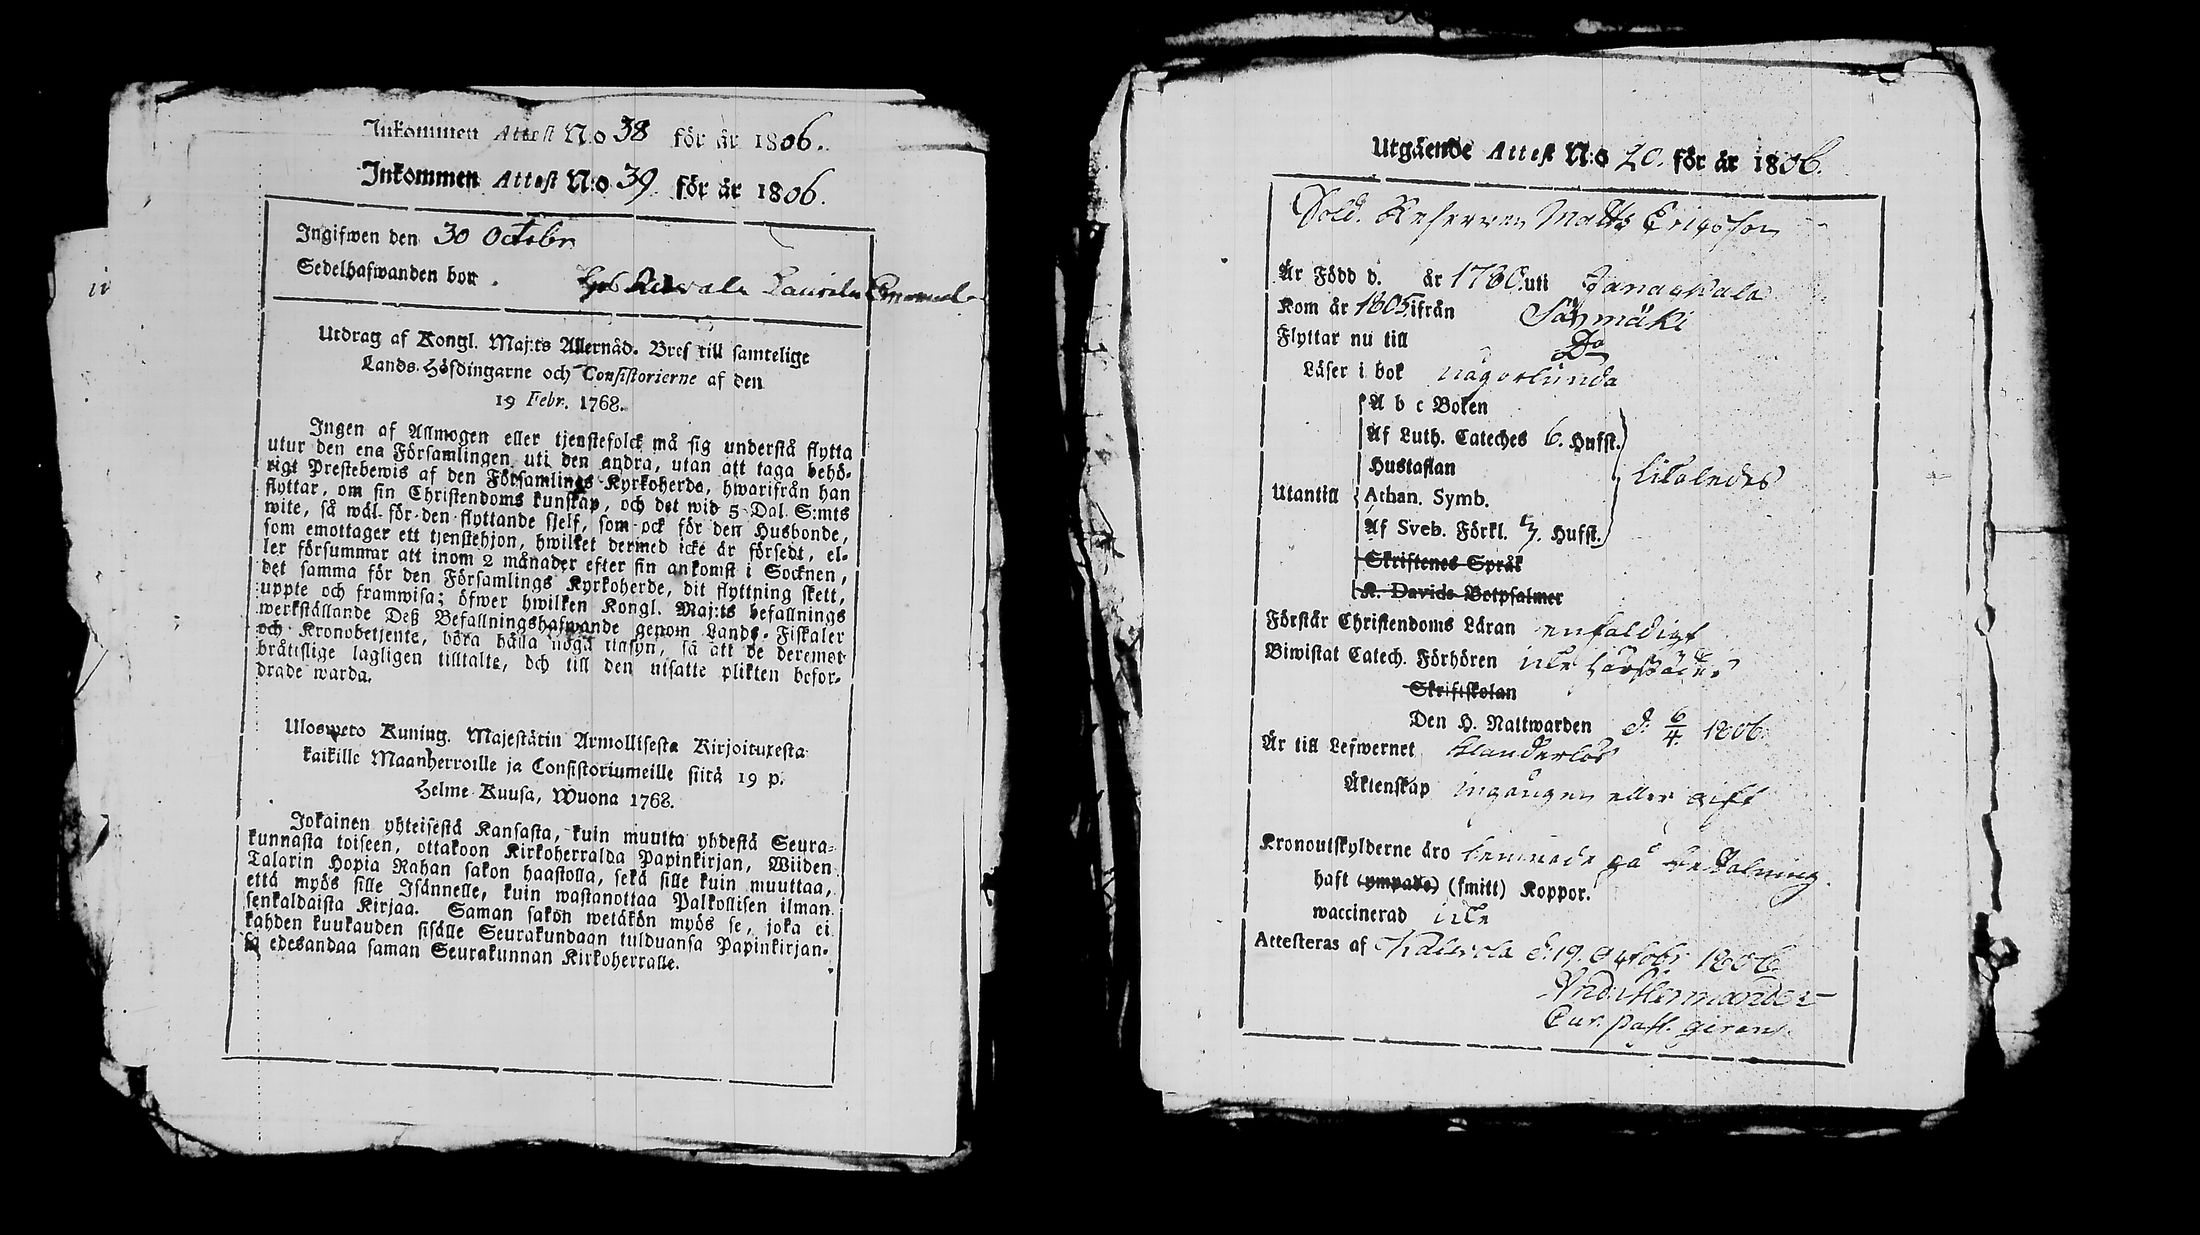 Inkommen Attest N:o 38 för år 1806.
Inkommen Attest N:o 39 för år 1806.
Ingifwen den 30 Octobr
Sedelhafwanden bor
Utdrag af Kongl. Maj:ts Allernåd. Bref till samtelige
Lands-Höfdingarne och Consistorierne af den
19 Febr. 1768.
Ingen af Allmogen eller tjenstefolck må sig understå flytta
utur den ena Församlingen uti den andra, utan att taga behö-
rigt Prestebewis af den Församlings Kyrkoherde, hwarifrån han
flyttar, om sin Christendoms kunskap, och det wid 5 Dal. S:mts
wite, så wäl för den flyttande sjelf, som ock för den Husbonde,
som emottager ett tjenstehjon, hwilket dermed icke är försedt, el-
ler försummar att inom 2 månader efter sin ankomst i Socknen,
det samma för den Församlings Kyrkoherde, dit flyttning skett,
uppte och framwisa; öfwer hwilken Kongl. Maj:ts befallnings
werkställande Deß Befallningshafwande genom Lands-Fiskaler
och Kronobetjente, böra hålla noga tilsyn, så att de deremot
bråttslige lagligen tilltalte, och till den utsatte plikten befor-
drade warda.
Ulosweto Kuning. Majestätin Armollisesta Kirjoituxesta
kaikille Maanherroille ja Consistoriumeille siitä 19 p.
Helme Kuusa, Wuona 1768.
Jokainen yhteisestä Kansasta, kuin muutta yhdestä Seura-
kunnasta toiseen, ottakoon Kirkoherralda Papinkirjan, Wiiden
Talarin Hopia Rahan sakon haastolla, sekä sille kuin muuttaa,
että myös sille Isännelle, kuin wastanottaa Palkollisen ilman
senkaldaista Kirjaa. Saman sakon wetäkön myös se, joka ei
kahden kuukauden sisälle Seurakundaan tulduansa Papinkirjan-
sa edesandaa saman Seurakunnan Kirkoherralle.
Utgående Attest N:o 20. för år 1806.
Sold. Reserven Matts Ericsson
Är Född d. år 1780. uti Janakkala
Kom år 1805 ifrån Säxmäki
Flyttar nu till Do
Läser i bok någorlunda
A b c Boken
Af Luth. Cateches 6. Hufst.
Hustaflan
Utantill Athan. Symb. likaledes
Af Sveb. Förkl. 3. Hufst.
Skriftenes Språk
K. Davids Botpsalmer
Förstår Christendoms Läran enfaldigt
Biwistat Catech. Förhören icke härstädes
Skriftskolan
Den H. Nattwarden d. 6/4. 1806.
Är till Lefwernet klanderlös
Äktenskap ingången eller gift
Kronoutskylderne äro lemnade på betalning.
haft (ympade) (smitt) Koppor.
waccinerad icke
Attesteras af Kalvola d. 19. Octobr 1806.